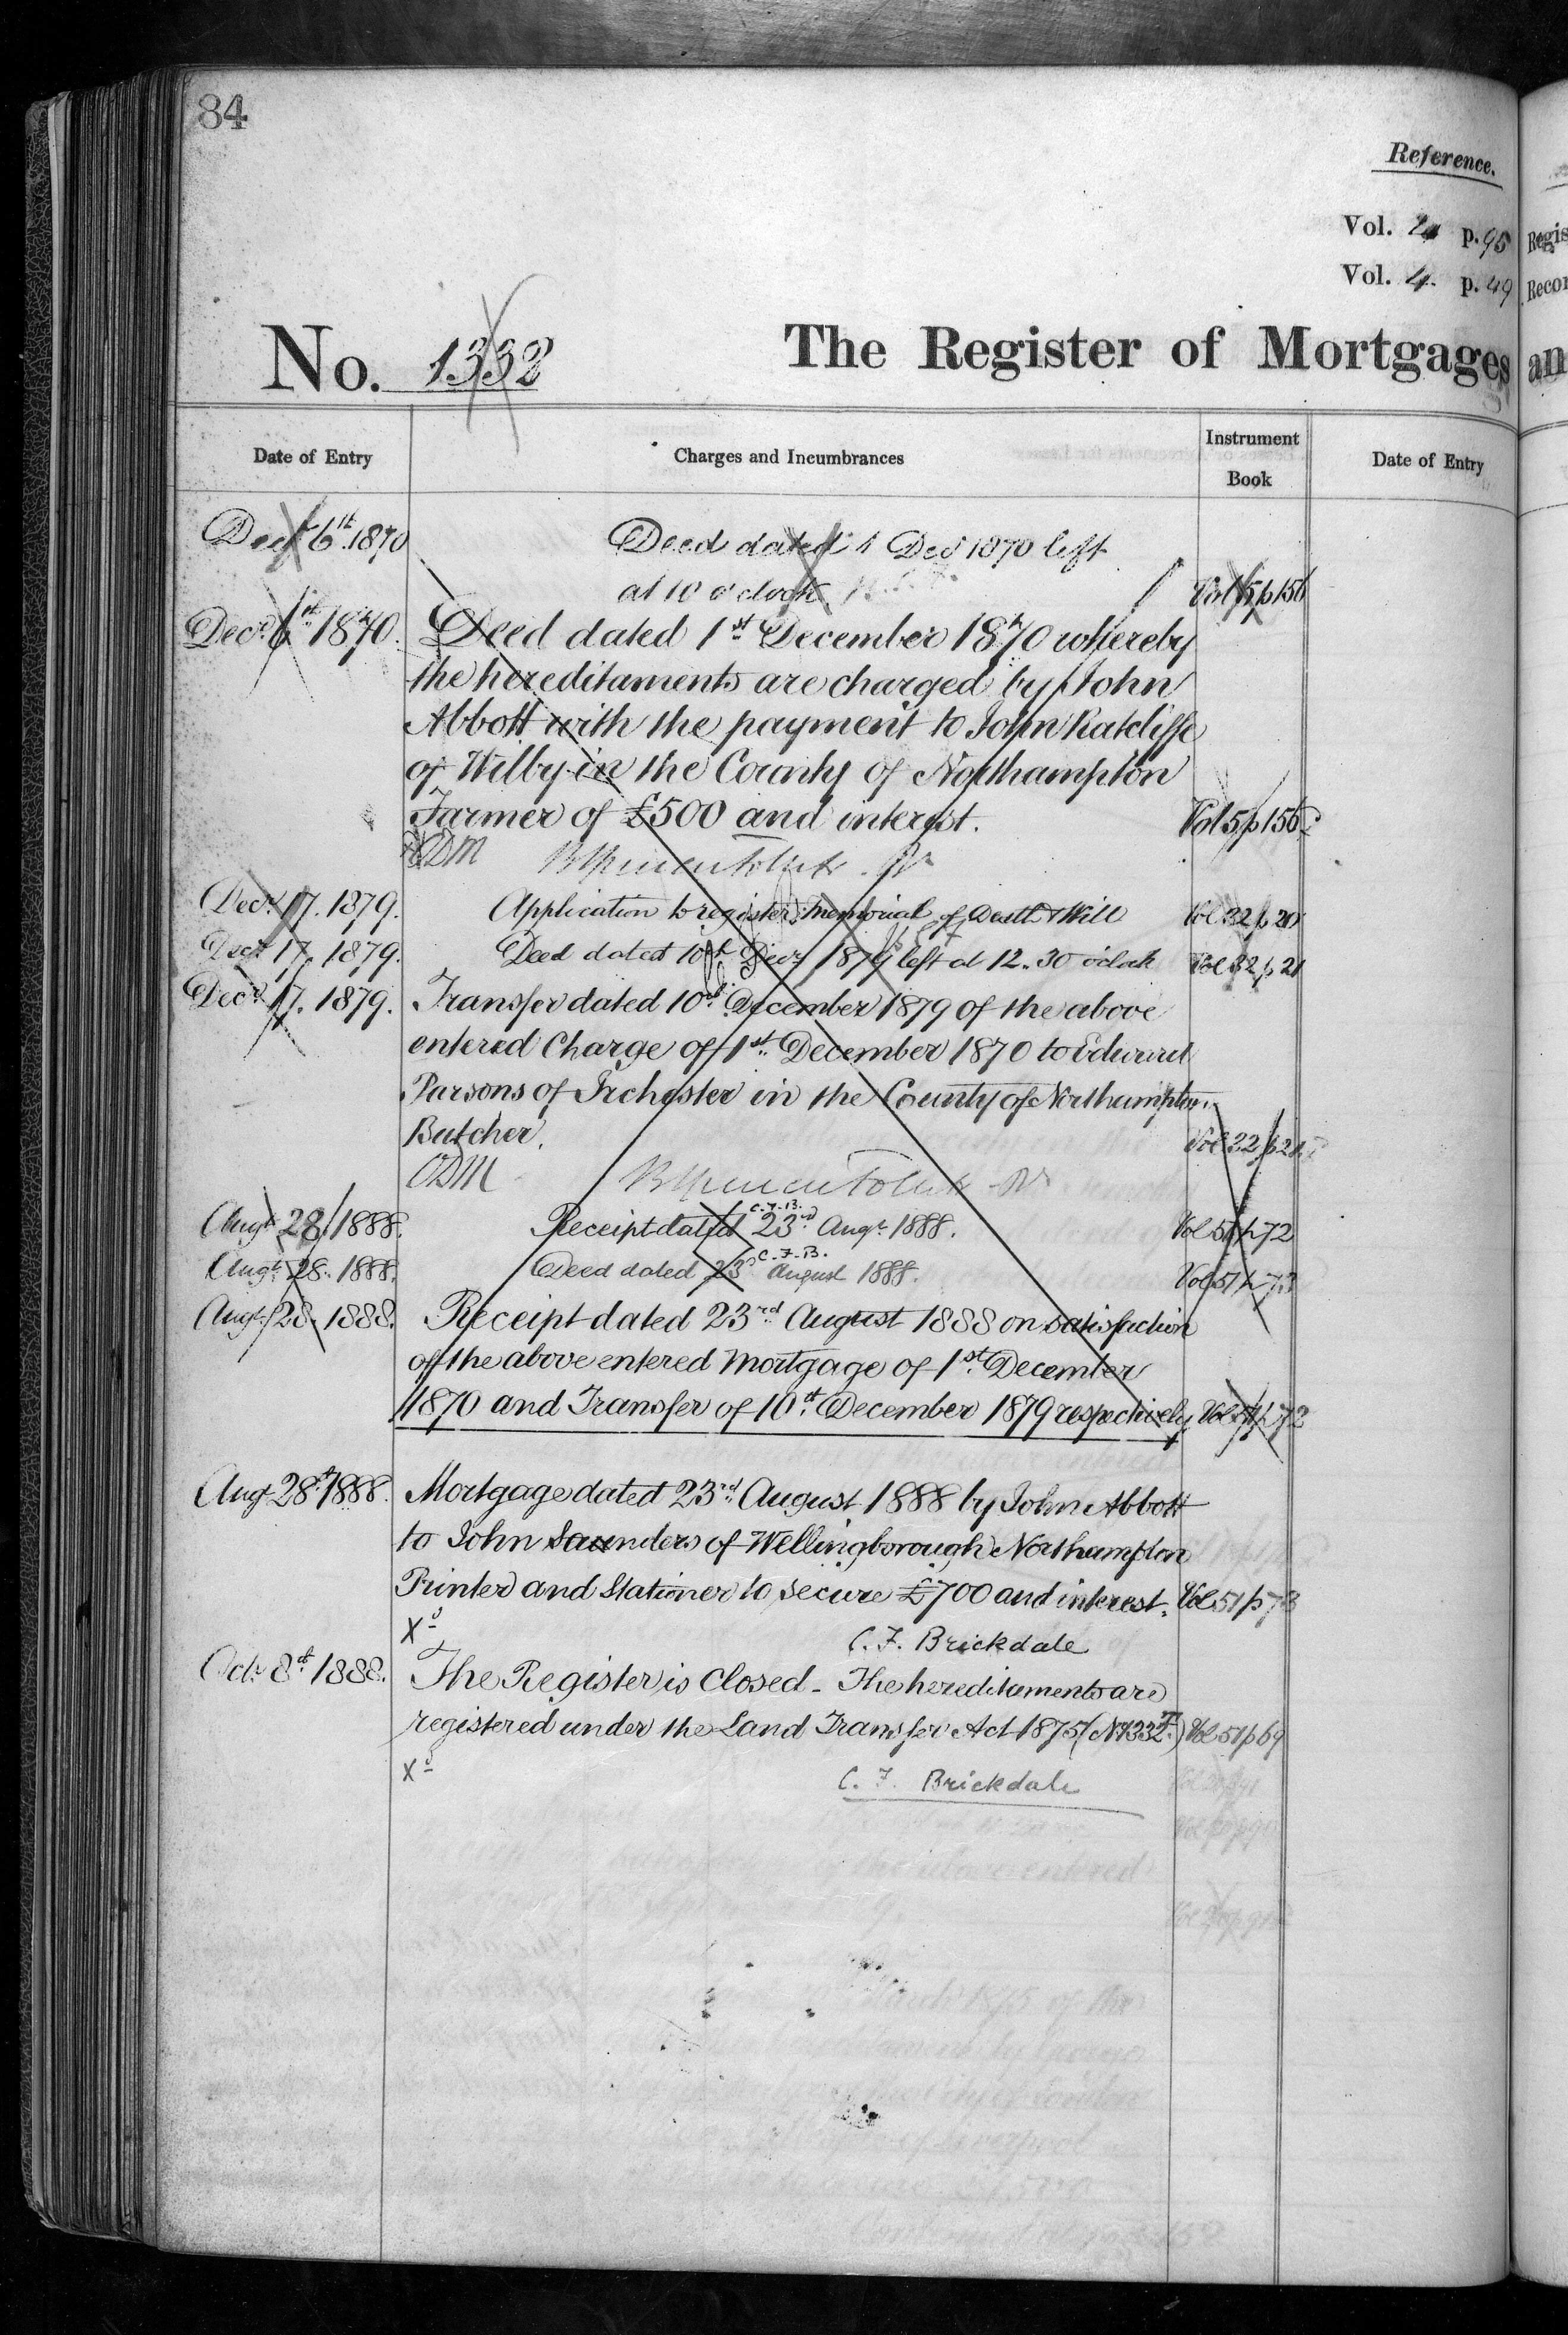 84
Reference.
Vol. 2 p. 95
Vol. 4. p. 49
Regis
Recor
No. 1332
The Register of Mortgages an
Date of Entry
Charges and Incumbrances
Instrument Book
Date of Entry
Decr 6th 1870
Deed dated 1 Decr 1870 left
at 10 o'clock
Vol 5 p 156
Decr 6th 1870. Deed dated 1st December 1870 whereby
the hereditaments are charged by John
Abbott with the payment to John Ratcliffe
of Wilby in the County of Northampton
Farmer of £500 and interest. Vol 5 p 156
Decr 17. 1879. Application to register Memorial of Death & Will Vol 32 p 20
Decr 17. 1879. Deed dated 10th Decr 1879 left at 12.30 o'clock Vol 32 p 21
Decr 17. 1879. Transfer dated 10th December 1879 of the above
entered Charge of 1st December 1870 to Edward
Parsons of Irchester in the County of Northampton.
Butcher. Vol 32 p 21
C.F.B.
Augt 28 1888. Receipt dated 23rd Augt 1888. Vol 51 p 72
C.F.B.
Augt 28. 1888. Deed dated 23rd August 1888. Vol 51 p 73
Augt 28. 1888. Receipt dated 23rd August 1888 on satisfaction
of the above entered Mortgage of 1st December
1870 and Transfer of 10th December 1879 respectively Vol 51 p 72
Aug 28th 1888. Mortgage dated 23rd August 1888 by John Abbott
to John Saunders of Wellingborough Northampton
Printer and Stationer to secure £700 and interest. Vol 51 p 73
Xd
C. F. Brickdale
Octr 8th 1888. The Register is Closed - The hereditaments are
registered under the Land Transfer Act 1875 (No 1332T.) Vol 51 p 69
Xd
C. F. Brickdale